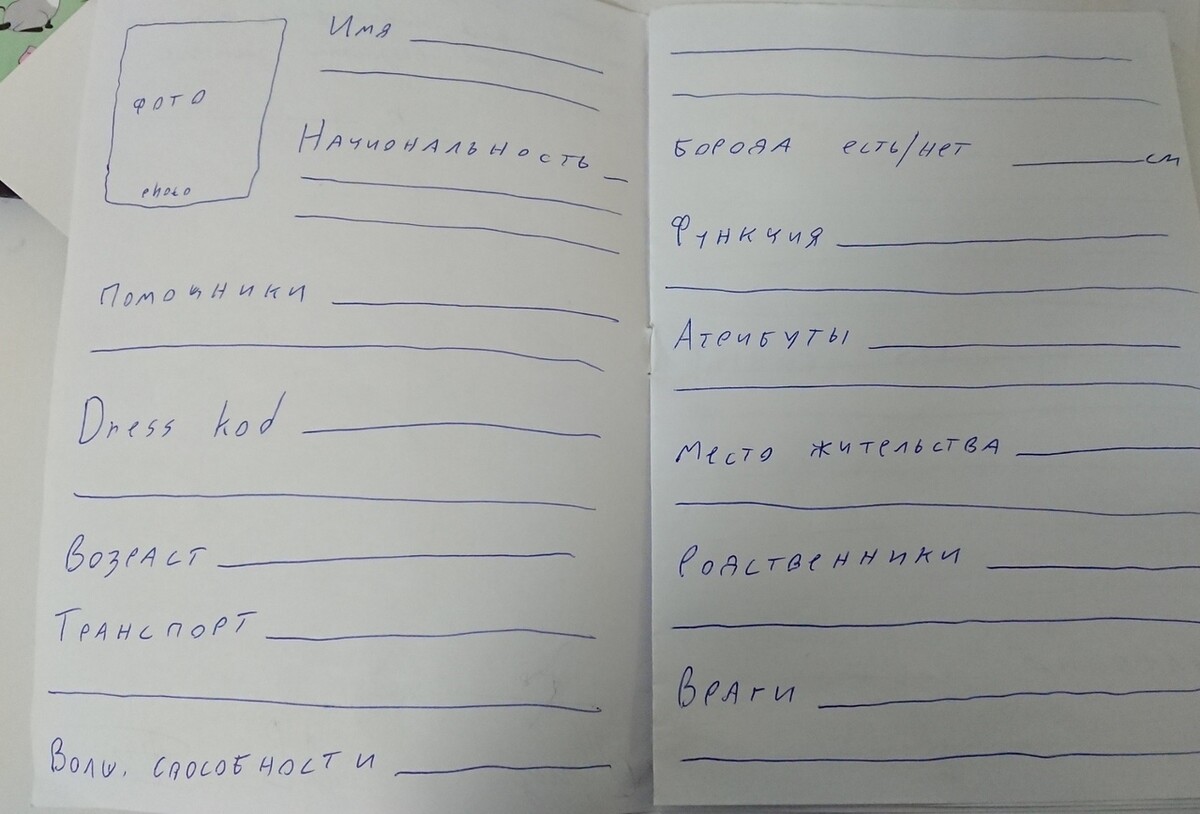 Имя
ФОТО
photo
Национальность
Помощники
Dress kod
Возраст
Транспорт
Волш. способности
Борода есть/нет см
Функция
Атрибуты
Место жительства
Родственники
Враги